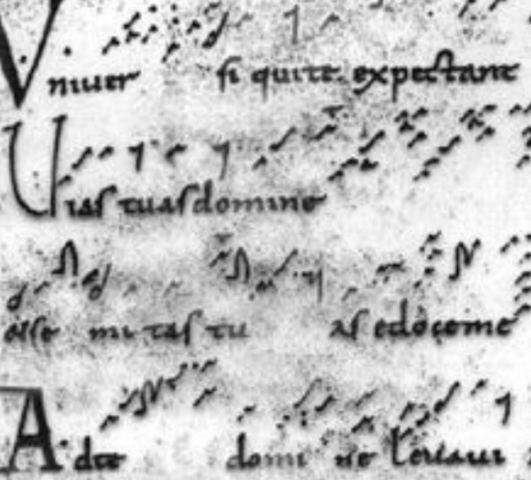 Univer si qui te expectant
Uias tuas domine
mi tas tu as edoceme
Ad te domi ne levavi